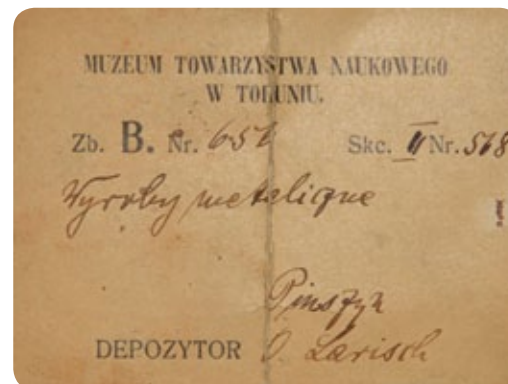 MUZEUM TOWARZYSTWA NAUKOWEGO
W TORUNIU.
Zb. B. Nr. 651 Skc. II Nr. 518
Wyroby metaliczne
Pinszyn
DEPOZYTOR O. Larisch